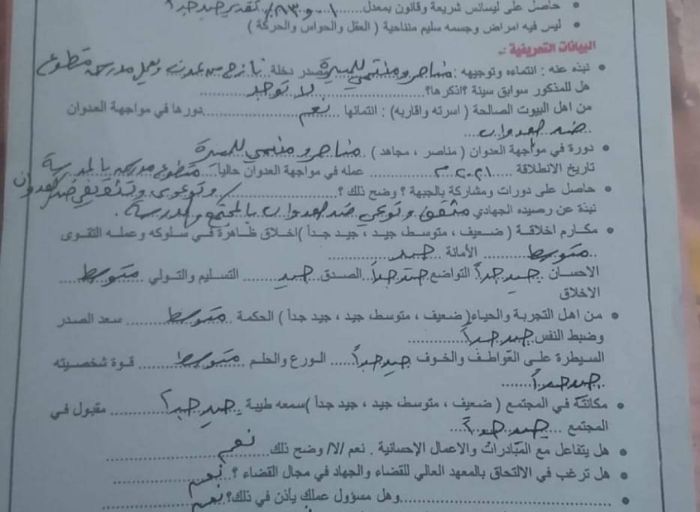 حاصل على ليسانس شريعة وقانون بمعدل ... ٨٣٪ تقدير جيد جداً
ليس فيه امراض وجسمه سليم ملناحية ( العقل والحواس والحركة )
البيانات التعريفية :ـ
نبذه عنه : انتماءه وتوجيهه : مناصر ومنتمي للمسيرة مصدر دخلة نازح من عمله ويعمل مدرسه متطوع
هل للمذكور سوابق سيئة ؟اذكرها؟ لا توجد
من اهل البيوت الصالحة ( اسرته واقاربه) : انتمائها نعم دورها في مواجهة العدوان
ضد العدوان
دورة في مواجهة العدوان ( مناصر ، مجاهد ) مناصر ومنتمي للمسيرة
تاريخ الانطلاقة ٢٠٢١ عمله في مواجهة العدوان حالياً متطوع مدرس بالمدرسة
حاصل على دورات ومشاركة بالجبهة ؟ وضح ذلك ؟ وتوعوي وتثقيفي ضد العدوان
نبذة عن رصيده الجهادي مثقف وتوعي ضد العدوان بالمجتمع والمدرسة.
مكارم اخلاقة ( ضعيف ، متوسط جيد ، جيد جداً )اخلاق ظاهرة في سلوكه وعمله التقوى
متوسط الأمانة جيد
الاحسان جيد جداً التواضع جيد جداً الصدق جيد التسليم والتولي متوسط
الاخلاق
من اهل التجربة والحياء( ضعيف ، متوسط جيد ، جيد جداً ) الحكمة متوسط سعد الصدر
وضبط النفس جيد جداً
السيطرة على العواطف والخوف جيد جداً الورع والحلم متوسط قوة شخصيته
جيد جداً
مكانتة في المجتمع ( ضعيف ، متوسط جيد ، جيد جداً )سمعه طيبة جيد جداً مقبول في
المجتمع جيد جداً
هل يتفاعل مع المبادرات والاعمال الإحسانية . نعم /لا/ وضح ذلك نعم
هل ترغب في الالتحاق بالمعهد العالي للقضاء والجهاد في مجال القضاء ؟ نعم
وهل مسؤول عملك يأذن في ذلك؟ نعم